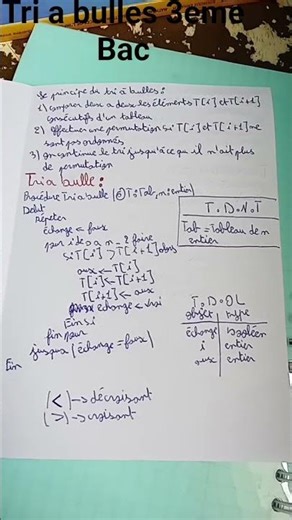 Tri a bulles 3eme
Bac
Le principe du tri à bulles :
1) comparer deux a deux les éléments T[i] et T[i+1]
consécutifs d'un tableau
2) effectuer une permutation si T[i] et T[i+1] ne
sont pas ordonnés
3) on continue le tri jusqu'à ce qu'il n'ait plus
de permutation
Tri a bulle :
Procédure Tri a bulle (@ T: Tab, n: entier)
Debut
Répéter
échange ← faux
pour i de 0 a n-2 faire
si T[i] > T[i+1] alors
aux ← T[i]
T[i] ← T[i+1]
T[i+1] ← aux
échange ← vrai
Finsi
fin pour
jusqua (échange = faux)
Fin
T.D.N.T
Tab = Tableau de n
entier
T.D.OL
objet type
échange booléen
i entier
aux entier
(<) → décroisant
(>) → croisant